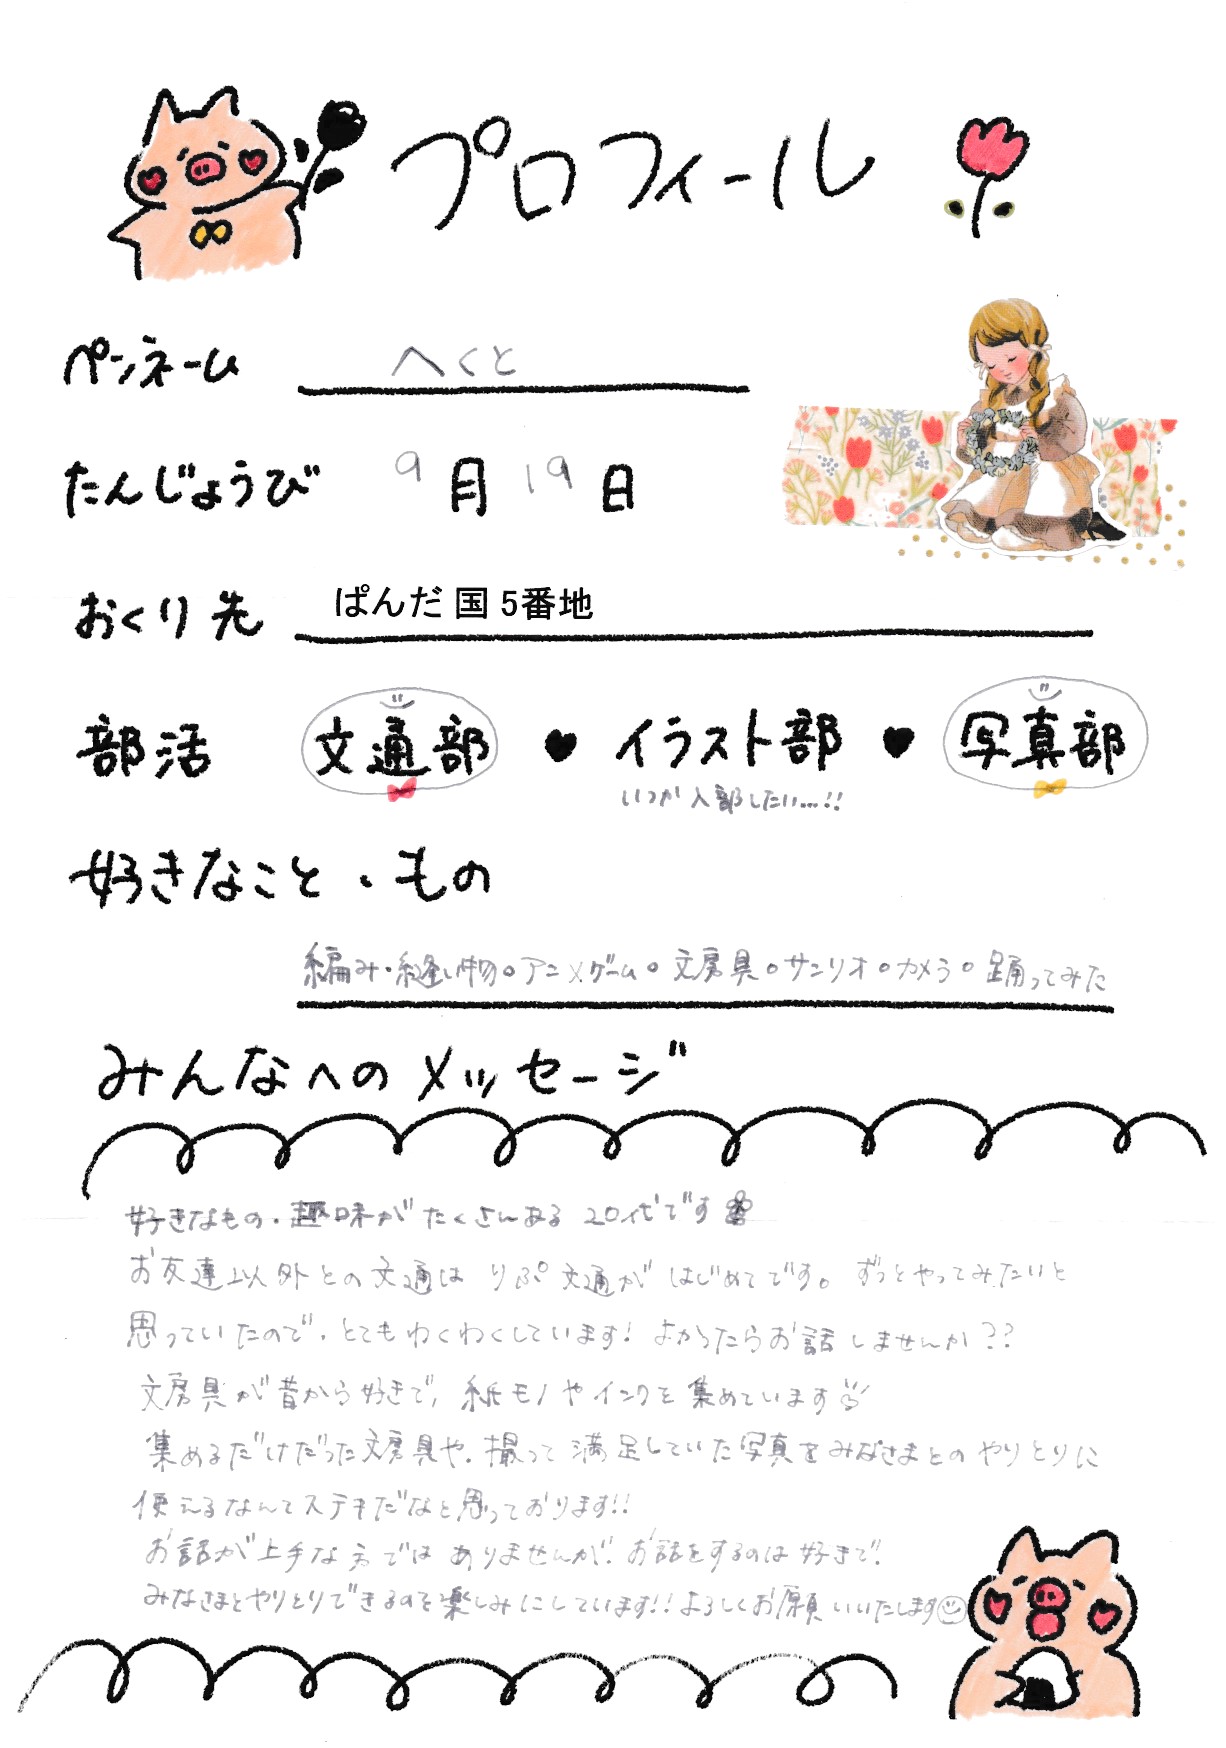 プロフィール
ペンネーム へくと
たんじょうび 9月19日
おくり先 ぱんだ国5番地
部活 文通部 ♥ イラスト部 ♥ 写真部
いつか入部したい...!!
好きなこと・もの
編み・縫い物。アニメゲーム。文房具。サンリオ。カメラ。踊ってみた
みんなへのメッセージ
好きなもの・趣味がたくさんある20代です
お友達以外との文通はりぷ文通がはじめてです。ずっとやってみたいと
思っていたので、とてもわくわくしています!よかったらお話しませんか??
文房具が昔から好きで、紙モノやインクを集めています
集めるだけだった文房具や、撮って満足していた写真をみなさまとのやりとりに
使えるなんてステキだなと思っております!!
お話が上手な方ではありませんが、お話をするのは好きで、
みなさまとやりとりできるのを楽しみにしています!!よろしくお願いいたします